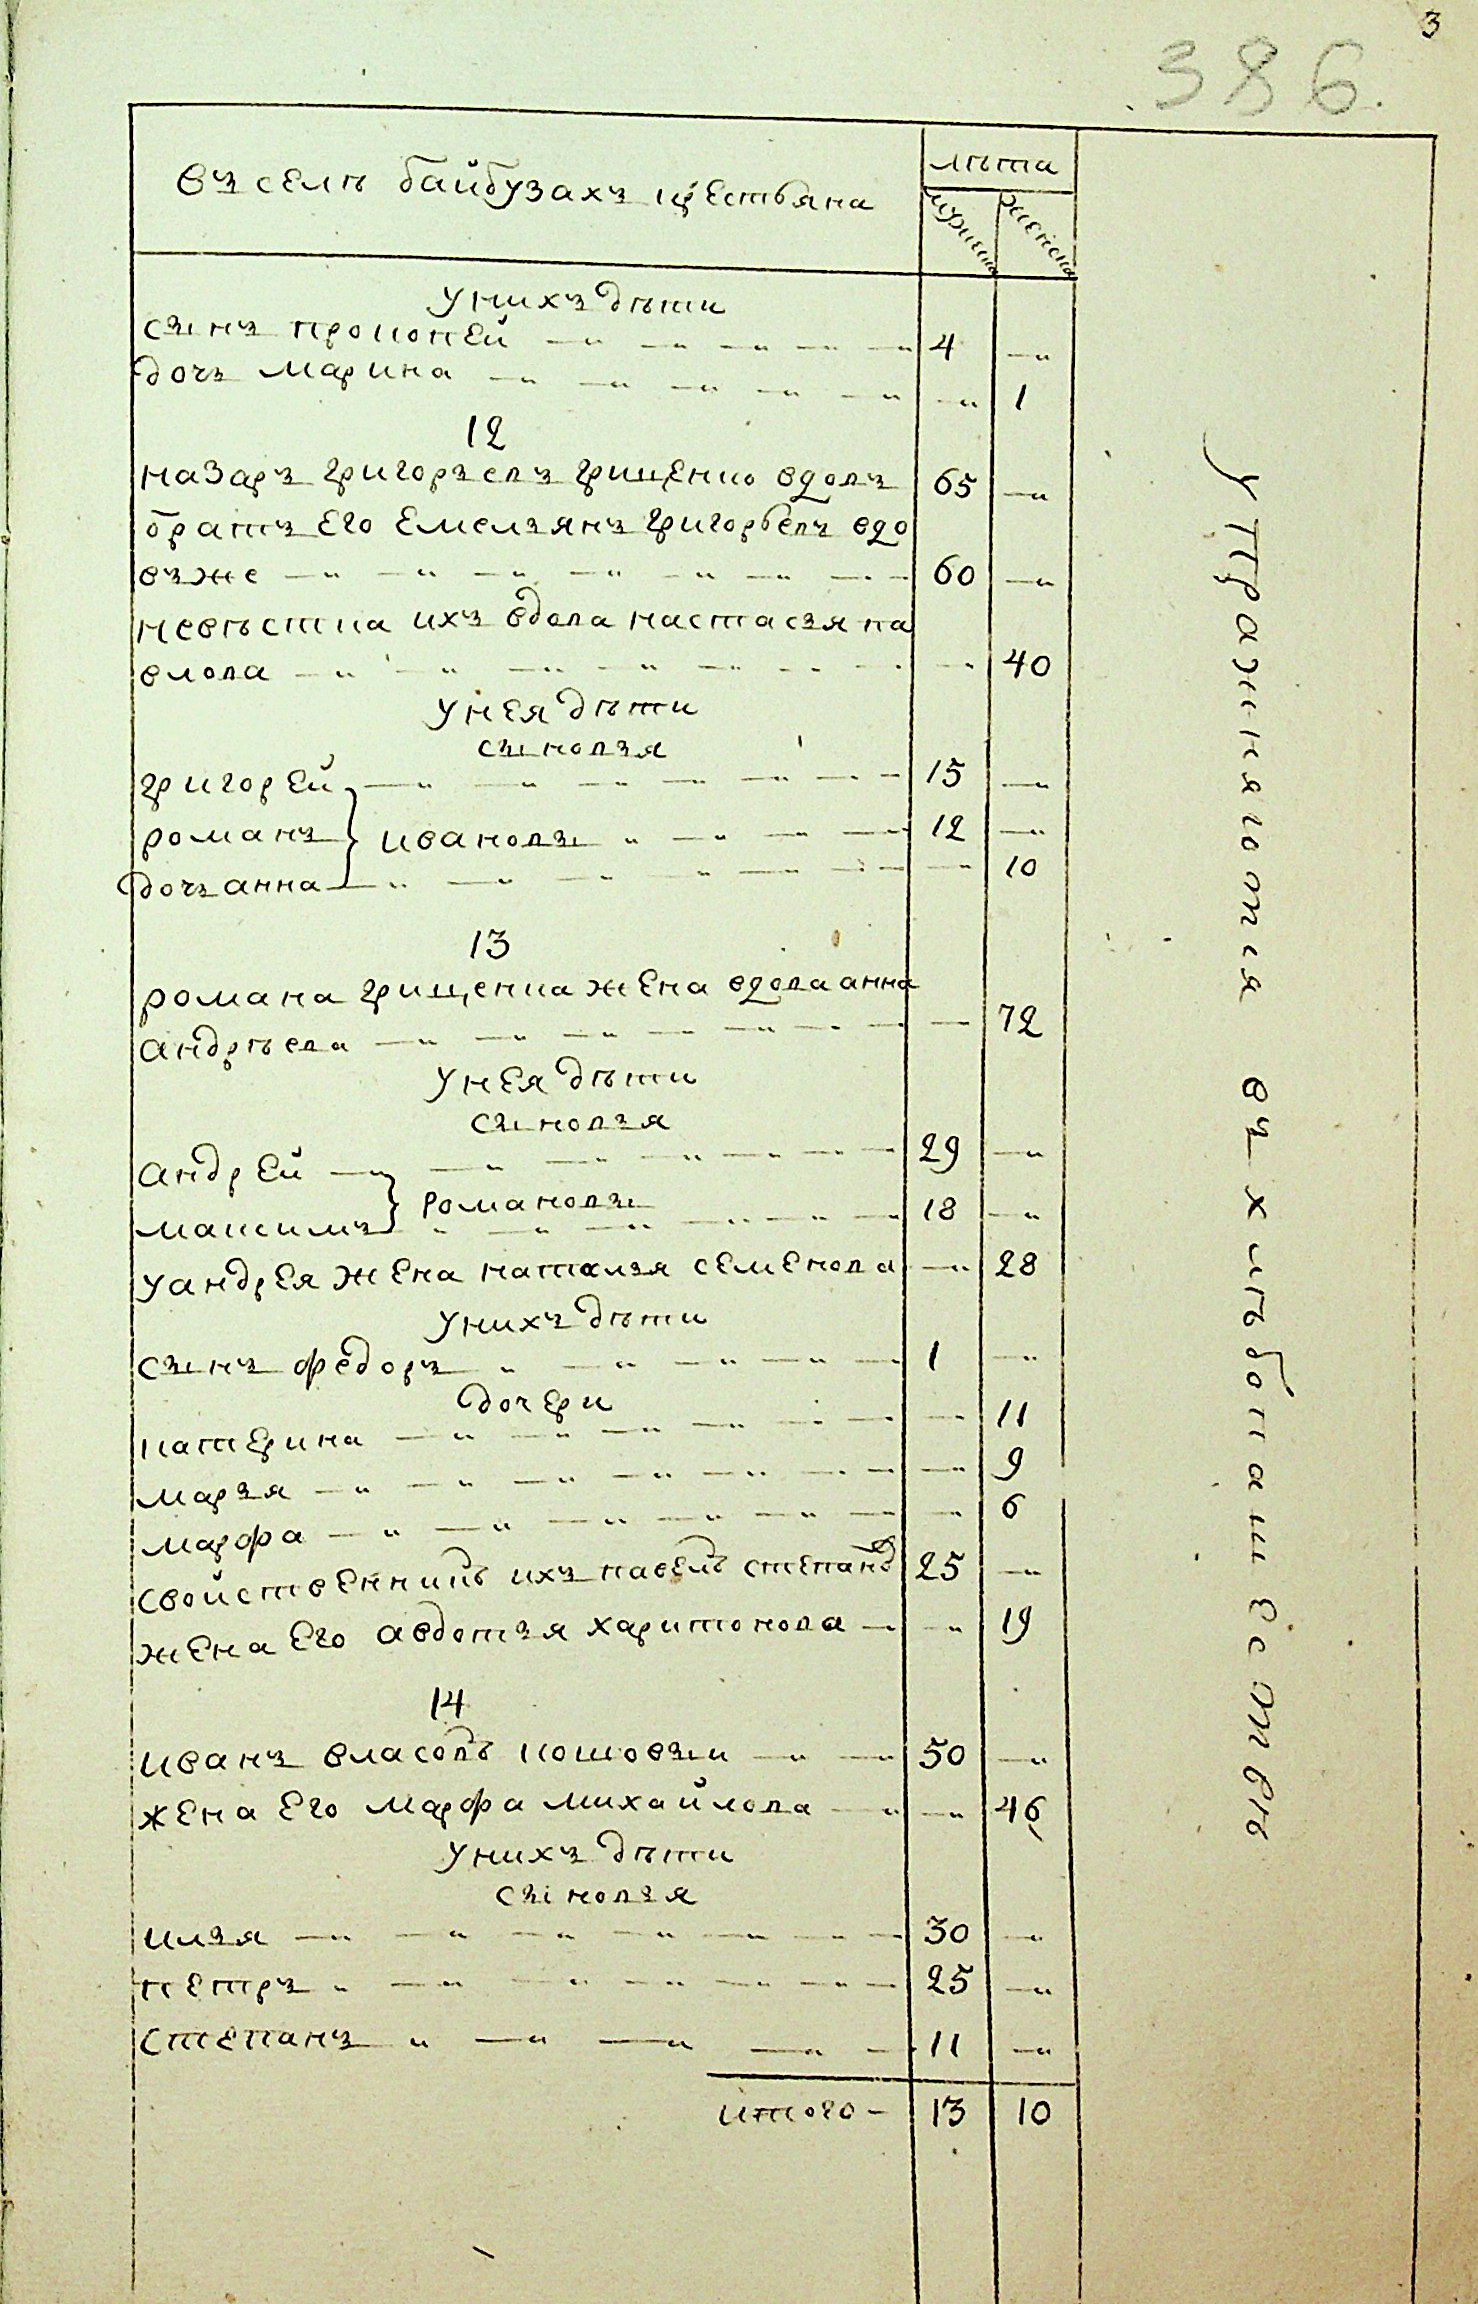 3
386.
въ селѣ байбузахъ крестьяна
лѣта
мужеска
женска
у нихъ дѣти
сынъ прокопей 4
дочъ марина 1
12
назаръ григоръевъ грищенко вдовъ 65
братъ его емелъянъ григорьевъ вдо
въ же 60
невѣстка ихъ вдова настасъя па
влова 40
у нея дѣти
сыновъя
григорей 15
романъ } ивановы 12
дочъ анна 10
13
романа грищенка жена вдова анна
андрѣева 72
у нея дѣти
сыновъя
андрей 29
максимъ } романовы 18
у андрея жена наталъя семенова 28
у нихъ дѣти
сынъ федоръ 1
дочери
катерина 11
маръя 9
марфа 6
свойственникъ ихъ павелъ степановъ 25
жена его авдотъя харитонова 19
14
иванъ власовъ кошовъи 50
жена его марфа михайлова 46
у нихъ дѣти
сыновъя
илъя 30
петръ 25
степанъ 11
итого 13 10
упражняются въ хлѣбопашествѣ